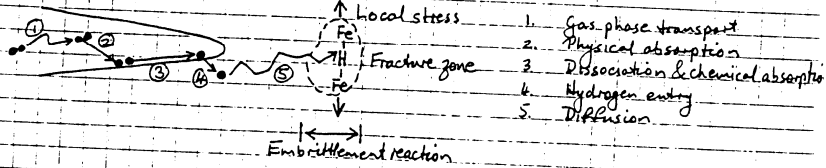 Local stress
Fe
H
Fe
Fracture zone
Embrittlement reaction
①
②
③
④
⑤
1. Gas phase transport
2. Physical absorption
3 Dissociation & chemical absorptio
4. Hydrogen entry
5. Diffusion